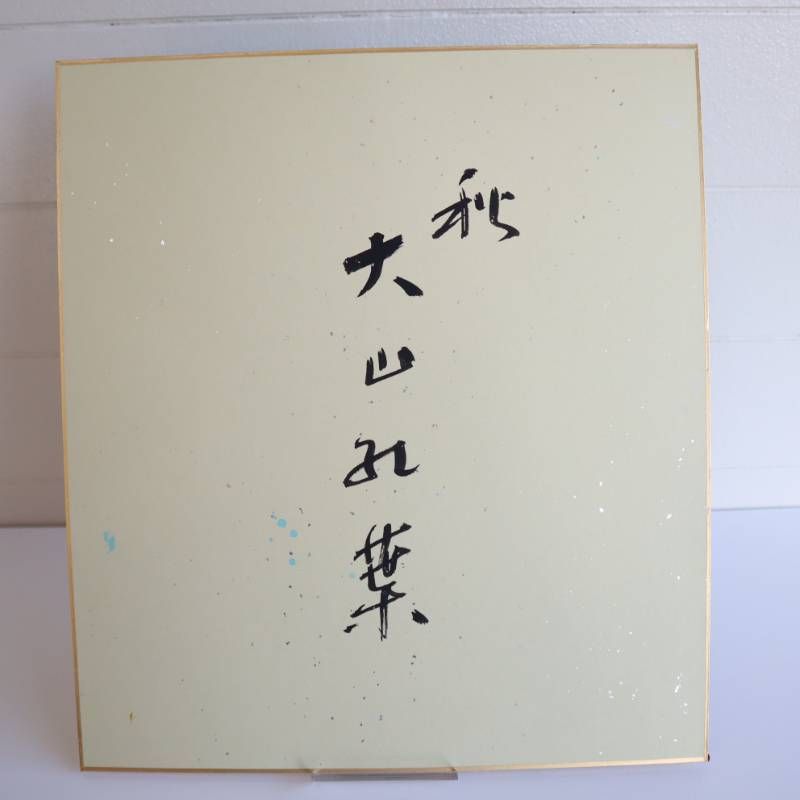 秋
大山紅葉